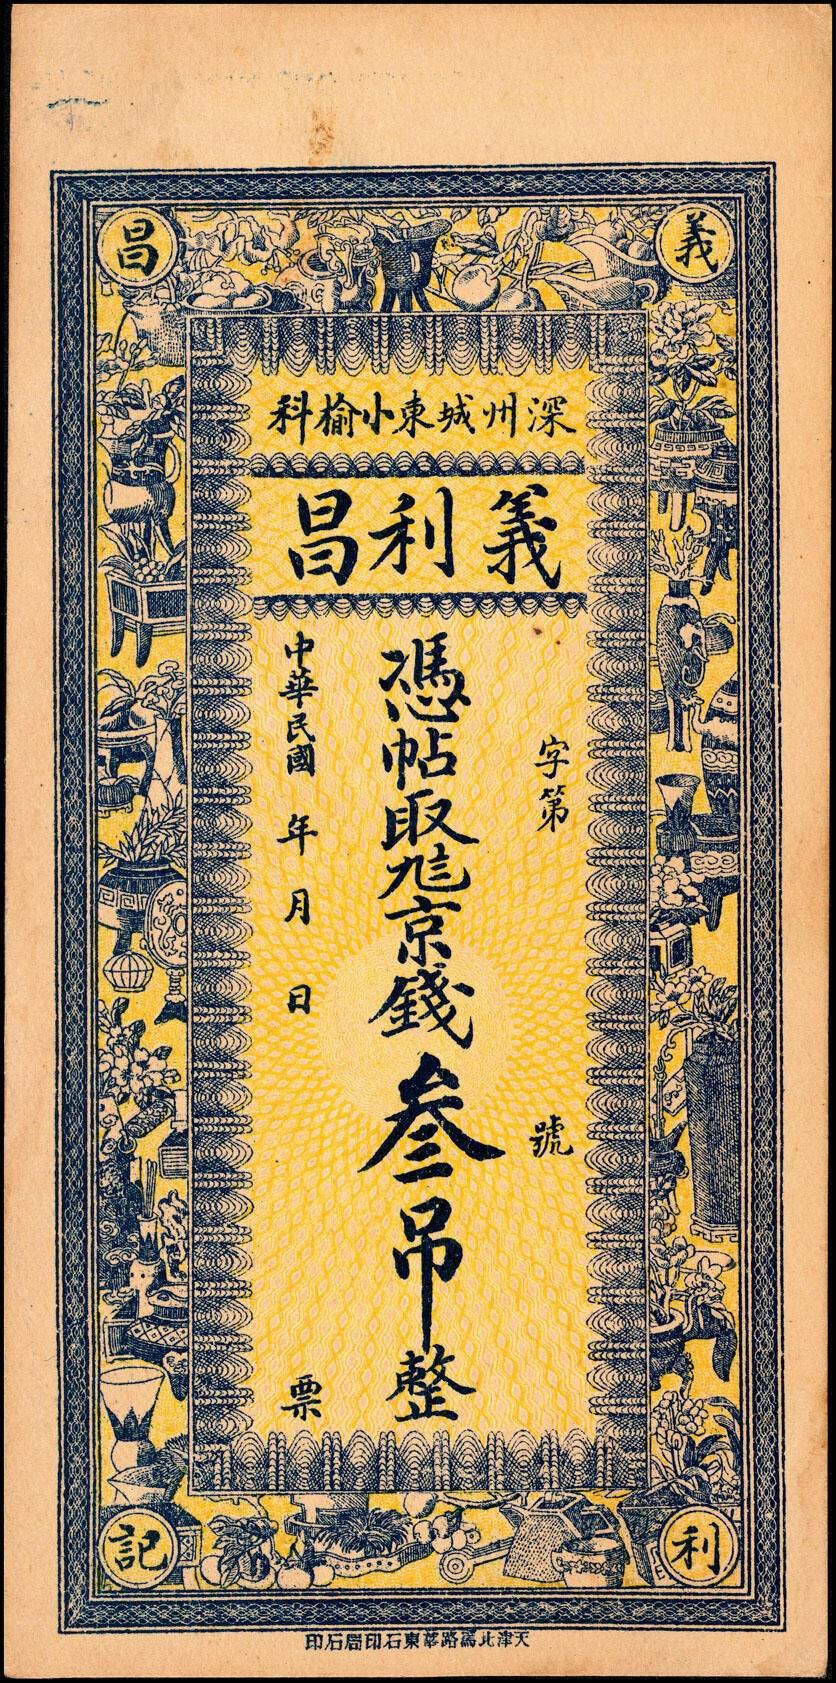 義利昌記
深州城東小榆科
義利昌
字第 號
憑帖取 京錢叁吊整
中華民國 年 月 日 票
天津北馬路華東石印局石印